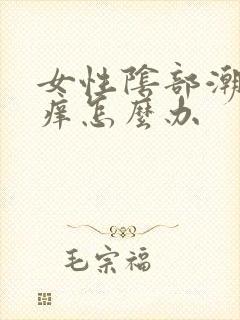 女性陰部潮
痒怎麼办
毛宗福